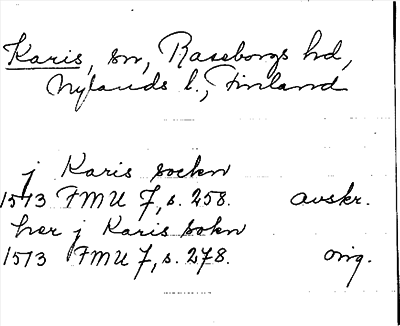 Karis, sn, Raseborgs hd,
Nylands l., Finland
j Karis sockn
1513 FMU 7, s. 258. avskr.
her j Karis sokn
1513 FMU 7, s. 278. orig.